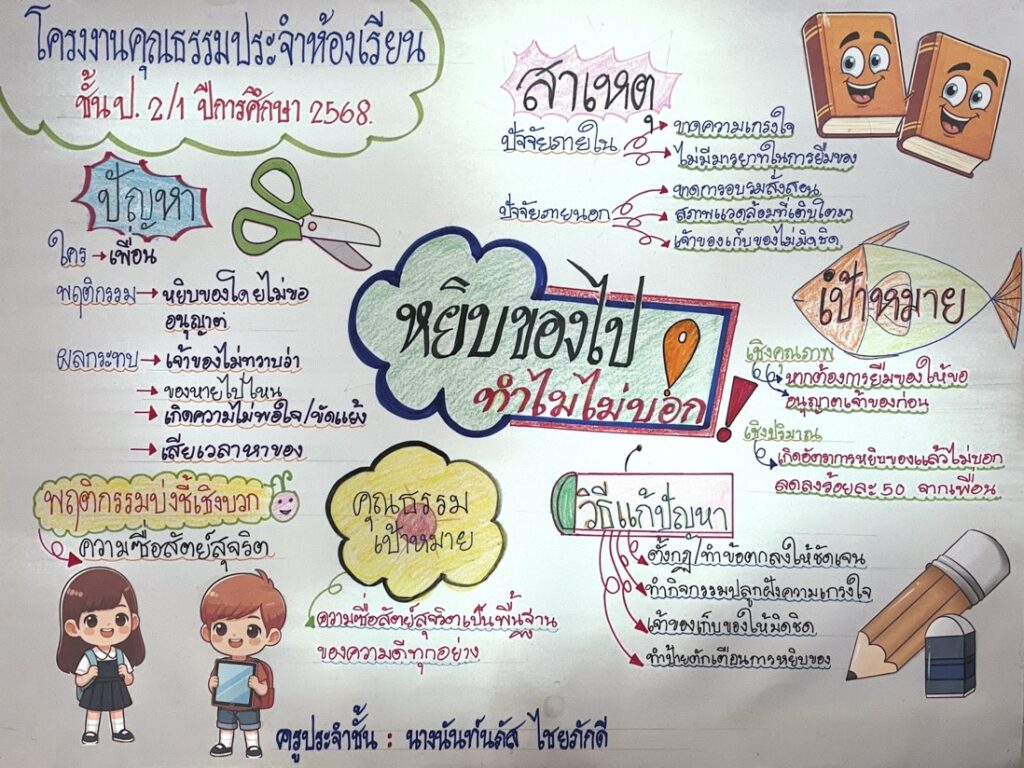 โครงงานคุณธรรมประจำห้องเรียน
ชั้น ป. 2/1 ปีการศึกษา 2568.
สาเหตุ
ปัจจัยภายใน
ขาดความเกรงใจ
ไม่มีมารยาทในการยืมของ
ปัจจัยภายนอก
ขาดการอบรมสั่งสอน
สภาพแวดล้อมที่เติบโตมา
เจ้าของเก็บของไม่มิดชิด
ปัญหา
ใคร → เพื่อน
พฤติกรรม → หยิบของโดยไม่ขอ
อนุญาต
ผลกระทบ → เจ้าของไม่ทราบว่า
→ ของหายไปไหน
→ เกิดความไม่พอใจ/ขัดแย้ง
→ เสียเวลาหาของ
หยิบของไป
ทำไมไม่บอก
เป้าหมาย
เชิงคุณภาพ
หากต้องการยืมของให้ขอ
อนุญาตเจ้าของก่อน
เชิงปริมาณ
เกิดอัตราการหยิบของแล้วไม่บอก
ลดลงร้อยละ 50 จากเพื่อน
พฤติกรรมบ่งชี้เชิงบวก
ความซื่อสัตย์สุจริต
คุณธรรม
เป้าหมาย
ความซื่อสัตย์สุจริตเป็นพื้นฐาน
ของความดีทุกอย่าง
วิธีแก้ปัญหา
ตั้งกฎ/ทำข้อตกลงให้ชัดเจน
ทำกิจกรรมปลูกฝังความเกรงใจ
เจ้าของเก็บของให้มิดชิด
ทำป้ายตักเตือนการหยิบของ
ครูประจำชั้น : นางนันท์นภัส ไชยภักดี